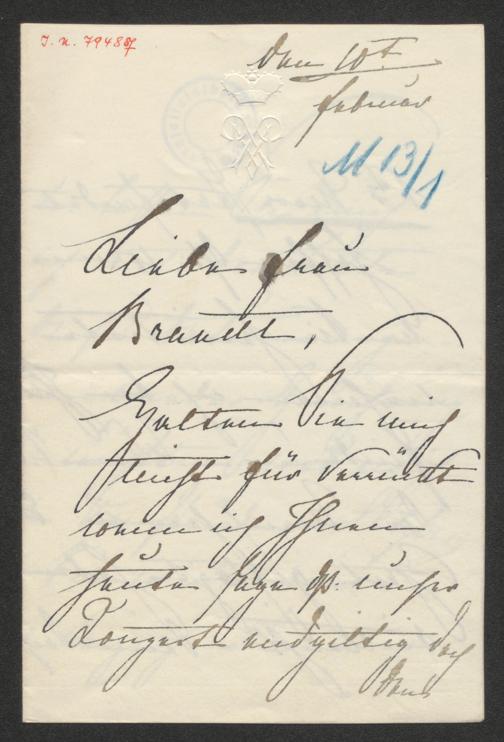 I. n. 79488
den 10t
Februar
M 13/1
Liebe Frau
Brandt,
Halten Sie mich
nicht für verrückt
wenn ich Ihnen
heute sage dß unser
Konzert endgiltig doch
den